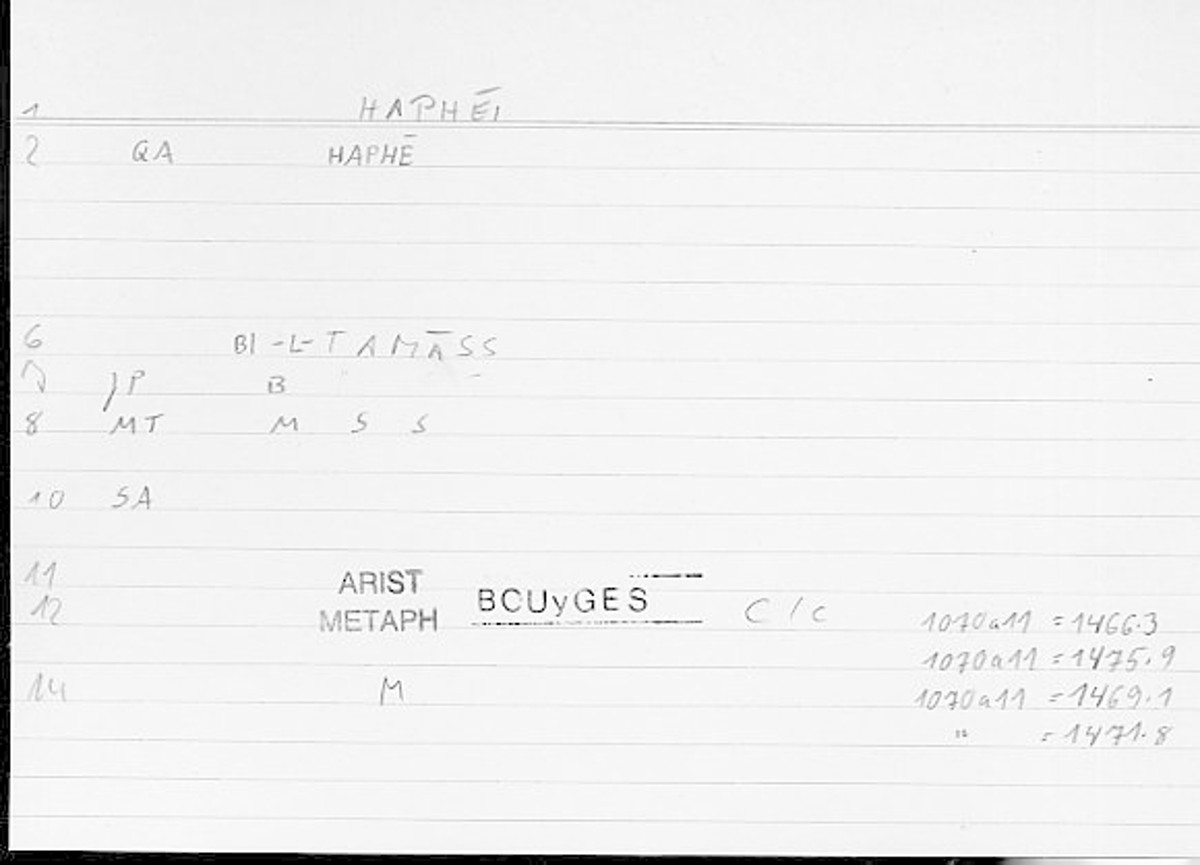 1 HAPHĒI
2 QA HAPHĒ
6 BI-L-TAMĀSS
JP B
8 MT M S S
10 SA
11 ARIST
12 METAPH BCUyGES C/c 1070a11 = 1466.3
1070a11 = 1475.9
14 M 1070a11 = 1469.1
" = 1471.8